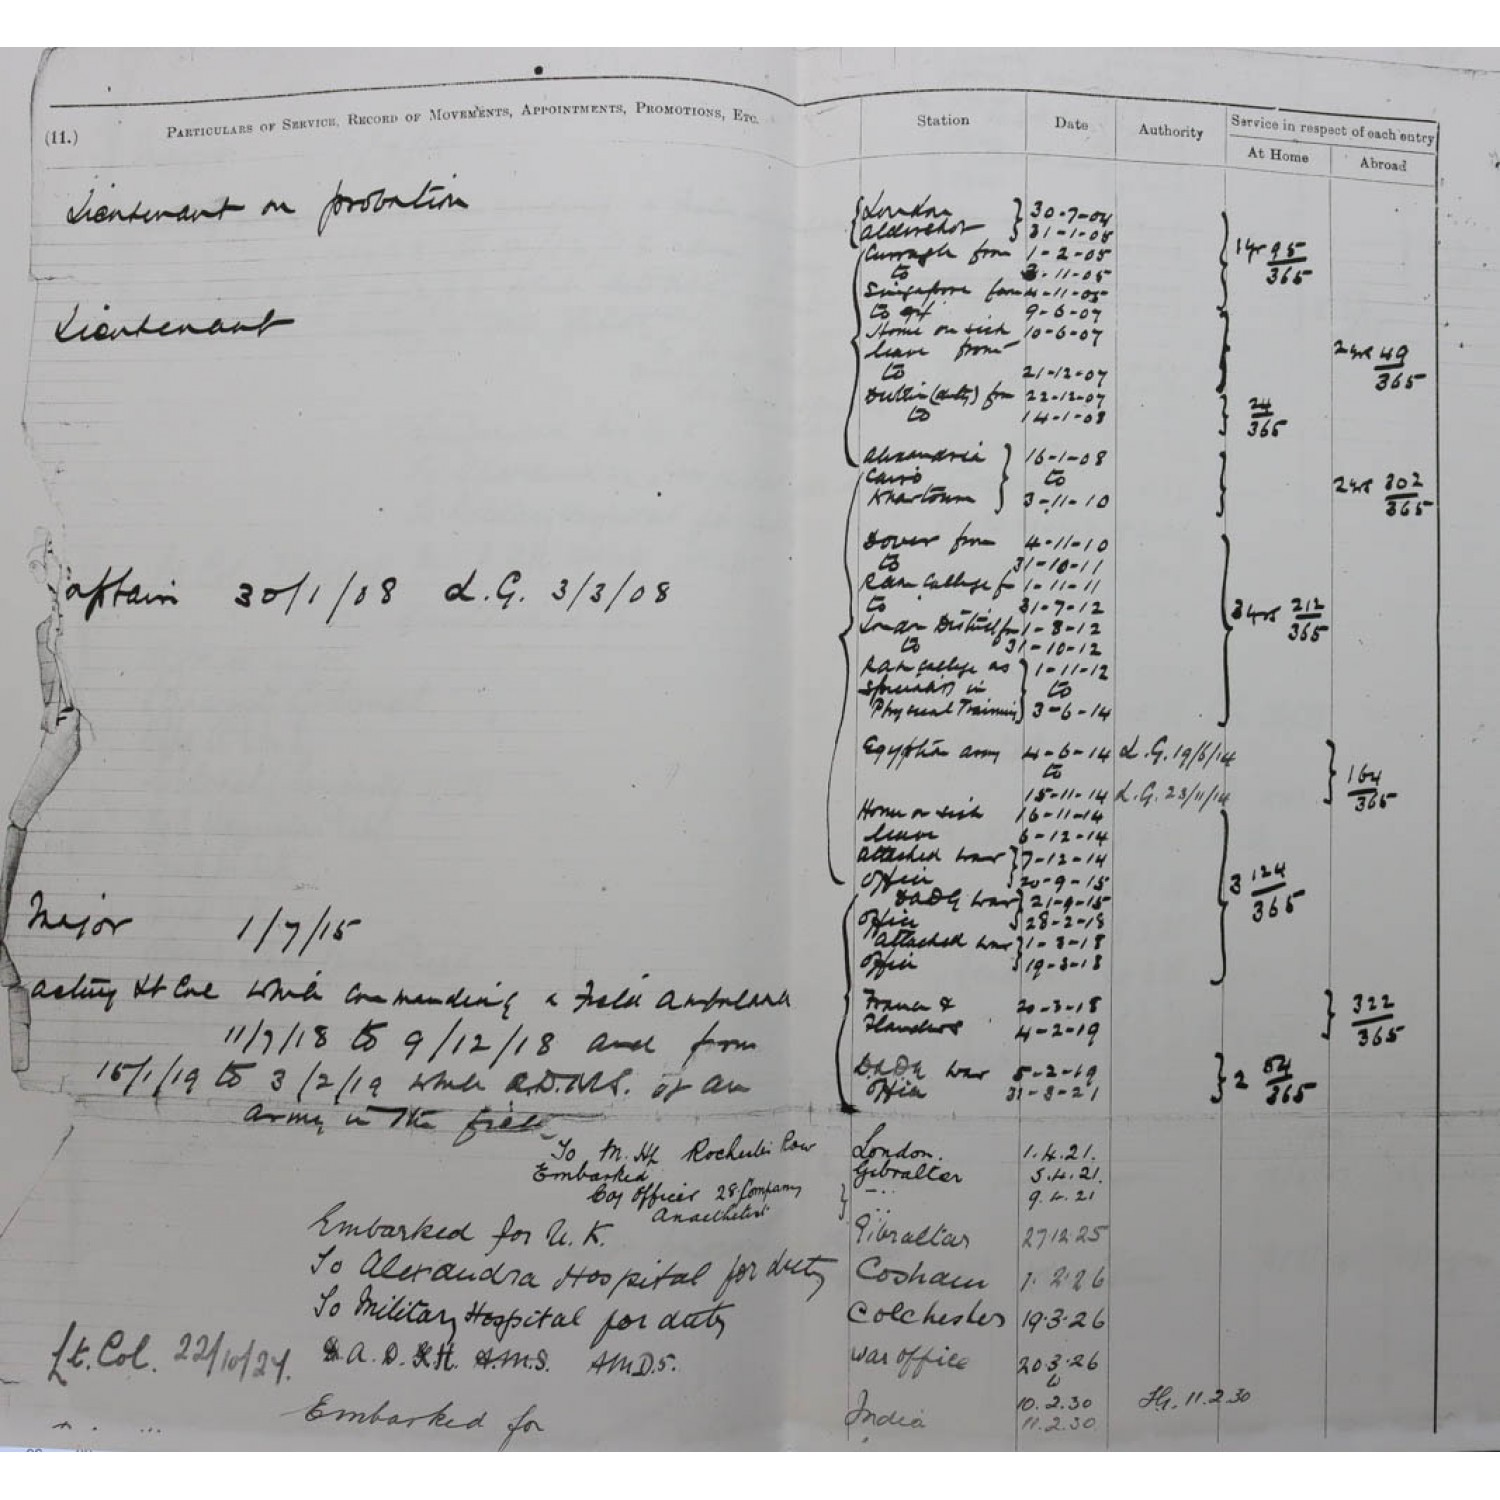 (11.) PARTICULARS OF SERVICE, RECORD OF MOVEMENTS, APPOINTMENTS, PROMOTIONS, ETC. Station Date Authority Service in respect of each entry
At Home Abroad
Lieutenant on probation
London 30-7-04
Aldershot 31-1-05
Curragh from 1-2-05
to 3-11-05
1yr 95/365
Singapore from 4-11-05
Lieutenant
to 9-6-07
Home on sick 10-6-07
leave from
to 21-12-07
2yrs 49/365
Dublin (duty) from 22-12-07
to 14-1-08
24/365
Alexandria 16-1-08
Cairo to
Khartoum 3-11-10
2yrs 302/365
Dover from 4-11-10
to 31-10-11
Captain 30/1/08 L.G. 3/3/08
RAM College f 1-11-11
to 31-7-12
London District fm 1-8-12
to 31-10-12
3yrs 212/365
RAM College as 1-11-12
specialist in to
Physical Training 3-6-14
Egyptian army 4-6-14 L.G. 19/6/14
to
15-11-14 L.G. 23/11/14
164/365
Home on sick 16-11-14
leave 6-12-14
attached war 7-12-14
office 20-9-15
3 124/365
Major 1/7/15
DADG war 21-9-15
office 28-2-18
attached war 1-3-18
office 19-3-18
acting Lt Col while commanding a Field Ambulance
France & 20-3-18
Flanders 4-2-19
322/365
11/7/18 to 9/12/18 and from
15/1/19 to 3/2/19 while A.D.M.S. of an
army in the field
DADG war 5-2-19
office 31-3-21
2 54/365
To M. Hp Rochester Row London. 1.4.21.
Embarked Gibraltar 5.4.21.
Coy Officer 28 Company -.. 9.4.21
Anaesthetist ..
Embarked for U.K. Gibraltar 27.12.25
To Alexandra Hospital for duty Cosham 1.2.26
To Military Hospital for duty Colchester 19.3.26
Lt. Col. 22/10/27. A.D. H. A.M.S. AMD5. War office 20.3.26
10.2.30 11.2.30
Embarked for India 11.2.30